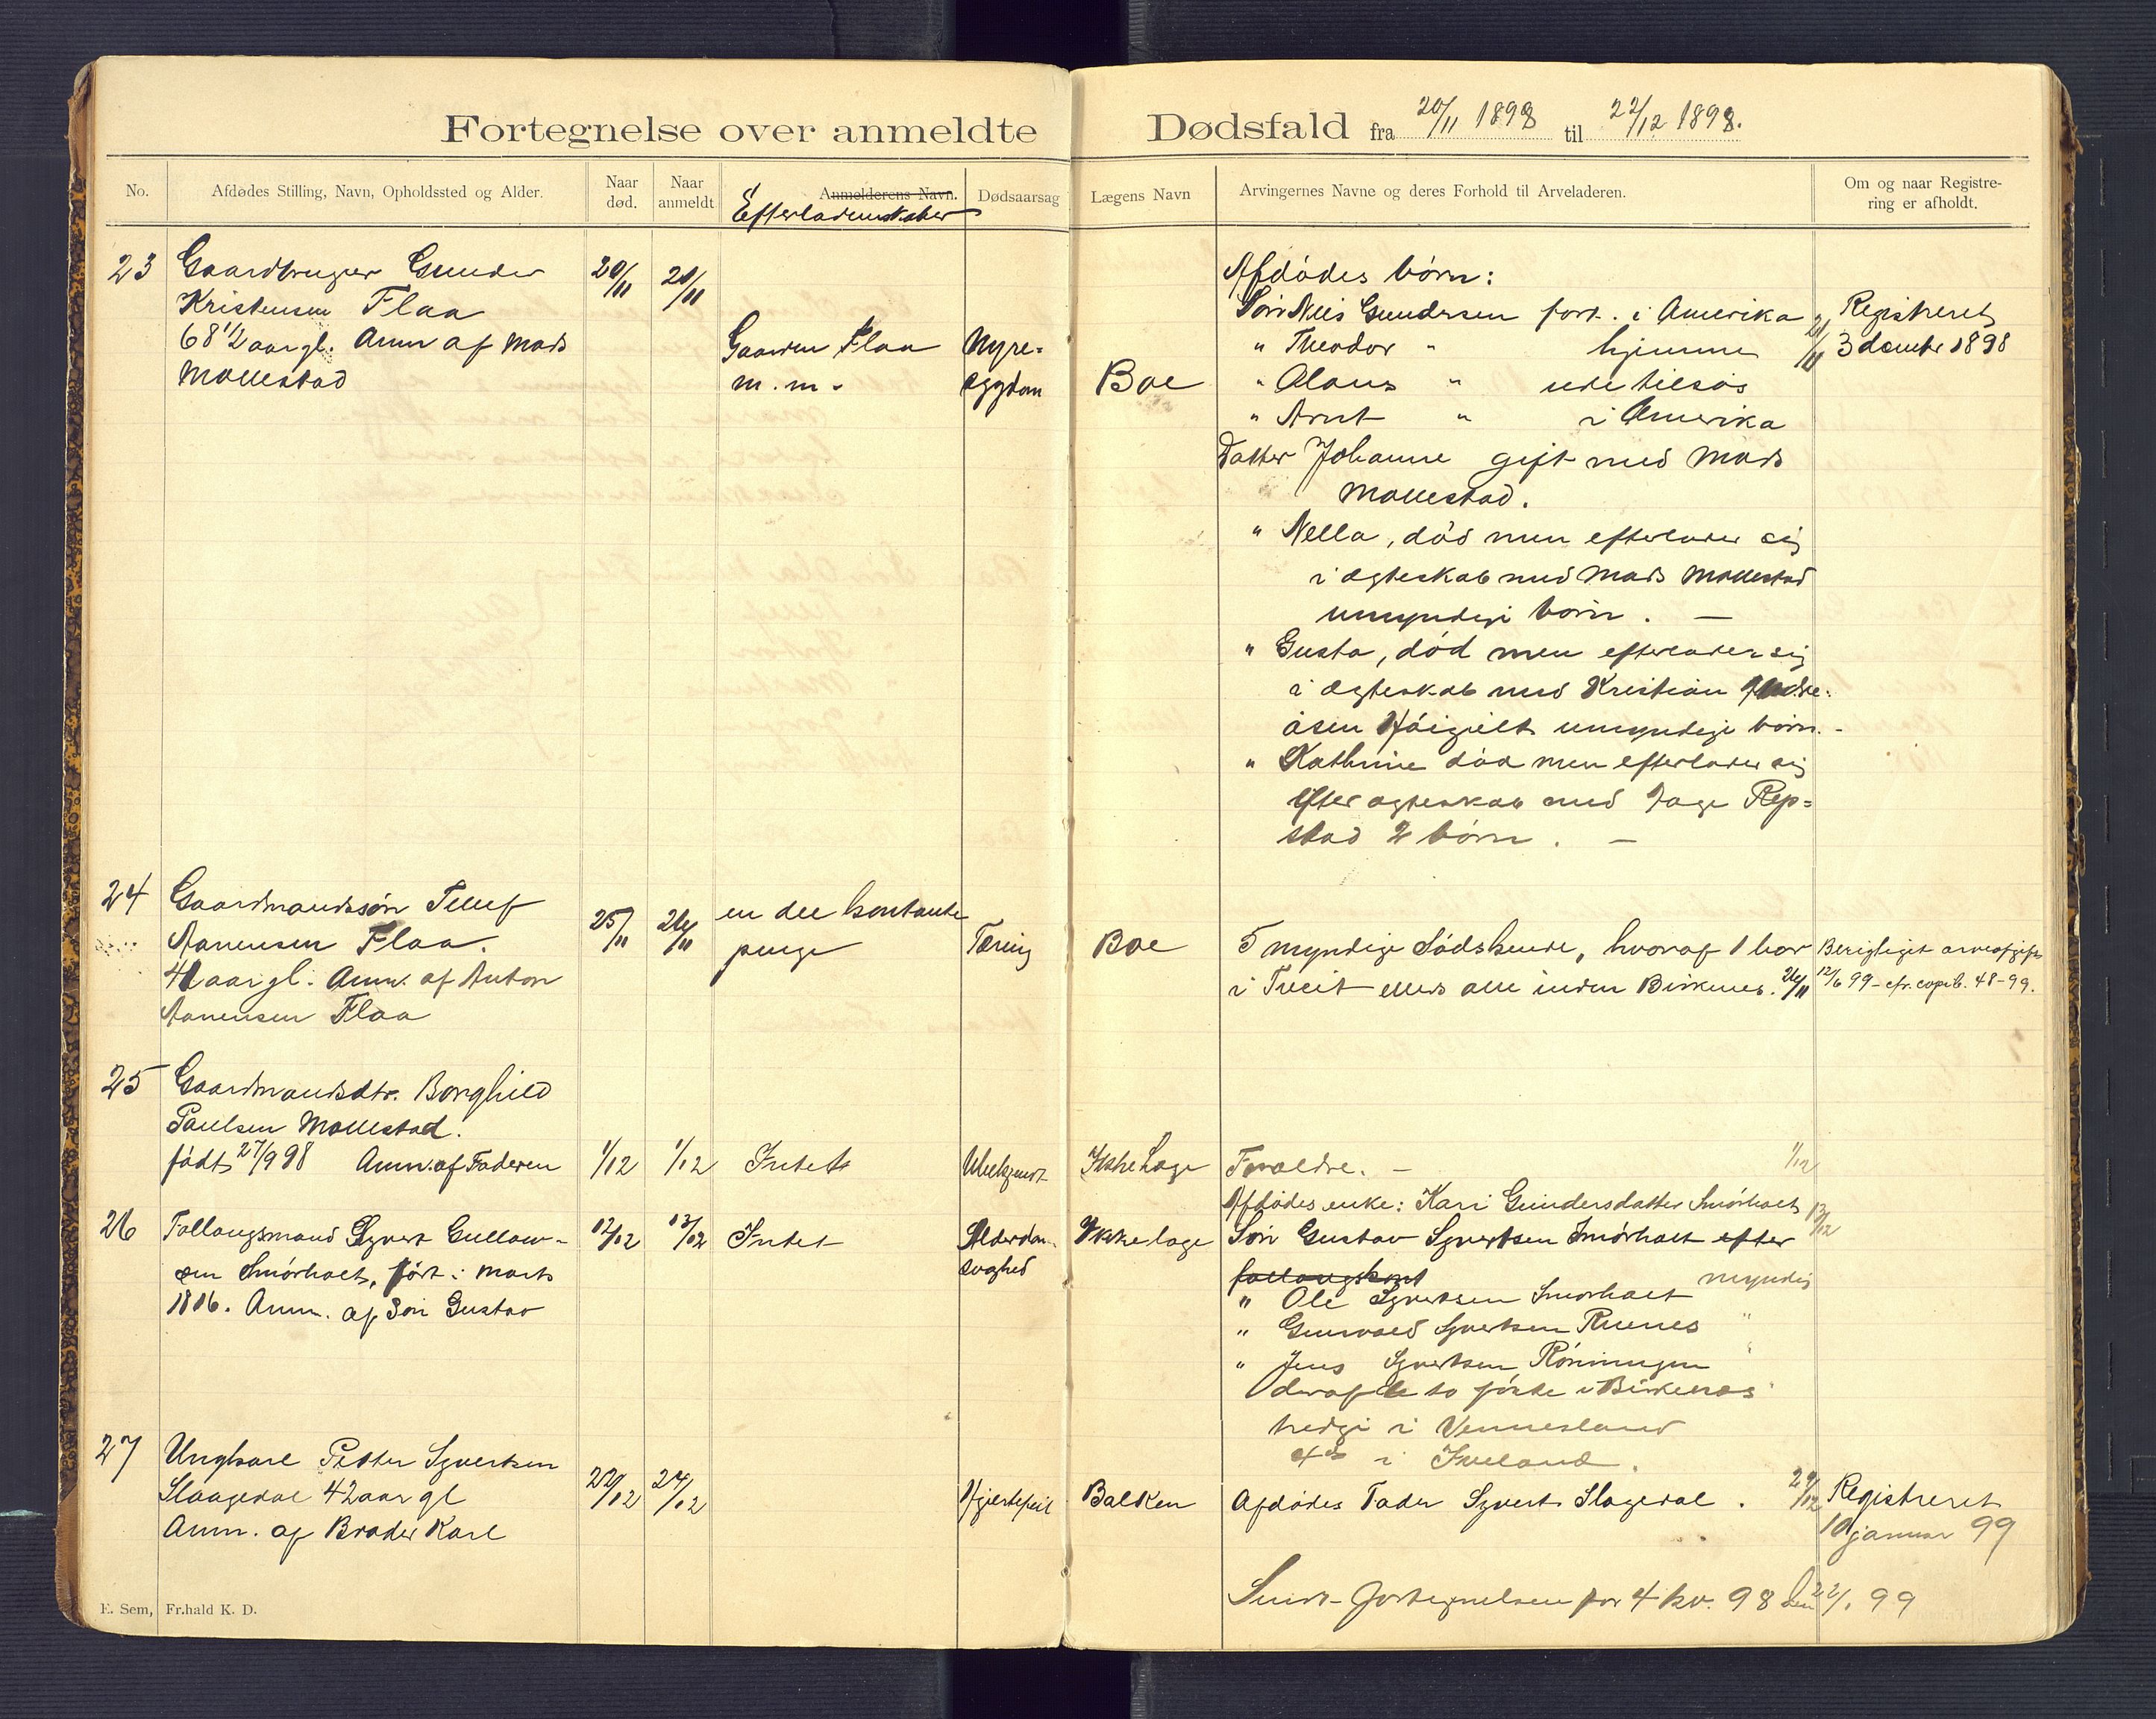 Fortegnelse over anmeldte Dødsfald fra 20/11 1898 til 22/12 1898.
No. Afdødes Stilling, Navn, Opholdssted og Alder. Naar død. Naar anmeldt Anmelderens Navn. Efterladenskaber Dødsaarsag Lægens Navn Arvingernes Navne og deres Forhold til Arveladeren. Om og naar Registrering er afholdt.
23 Gaardbruger Gunder
Kristensen Flaa
68 1/2 aar gl. Anm af Mads
Mollestad
20/11 21/11
Gaarden Flaa
m. m.
Nyre-
sygdom
Boe
Afdødes børn:
Søn Nils Gundersen fort. i Amerika
" Theodor " hjemme 21/11
" Olaus " ude tilsøs
" Arnt " i Amerika
Datter Johanne gift med Mads
Mollestad.
" Nella, død men efterlader sig
i ægteskab med Mads Mollestad
umyndige børn. —
" Gusta, død men efterlader sig
i ægteskab med Kristian Andre-
asen Høigilt umyndige børn. -
" Kathrine død men efterlader sig
efter ægteskab med Tage Rep-
stad 2 børn. —
Registreret
3 december 1898
24 Gaardmandssøn Tellef
Aanensen Flaa.
41 aar gl. Anm. af Anton
Aanensen Flaa
25/11 26/11
en del kontante
penge
Tæring
Boe
5 myndige Sødskende, hvoraf 1 bor
i Tveit ellers alle inden Birkenes. 26/11
Berigtiget arveafgift
12/6 99 - cfr. copib. 48-99.
25 Gaardmandsdtr. Borghild
Paulsen Mollestad.
født 27/9 98 Anm. af Faderen
1/12 1/12 Intet Ubekjendt Ikke Læge Forældre. — 1/12
26 Follaugsmand Syvert Gullow-
sen Smørholt, født i Marts
1816. Anm. af Søn Gustav
12/12 13/12 Intet
Alderdom-
svaghed
Ikke læge
Afdødes enke: Kari Gundersdatter Smørholt 13/12
Søn Gustav Syvertsen Smørholt efter
follaugskont myndig
" Ole Syvertsen Smørholt
" Gunvald Syvertsen Ruenes "
" Jens Syvertsen Røiningen
deraf de to første i Birkenæs
tredje i Vennesland
4de i Iveland.
27 Ungkarl Petter Syvertsen
Slaagedal 42 aar gl
Anm. af Broder Karl
22/12 24/12 Hjertefeil Balken Afdødes Fader Syvert Slagedal. 24/12
Registreret
10 januar 99
Sendt Fortegnelsen for 4 kv. 98 den 22/1 99
E. Sem, Fr.hald K. D.